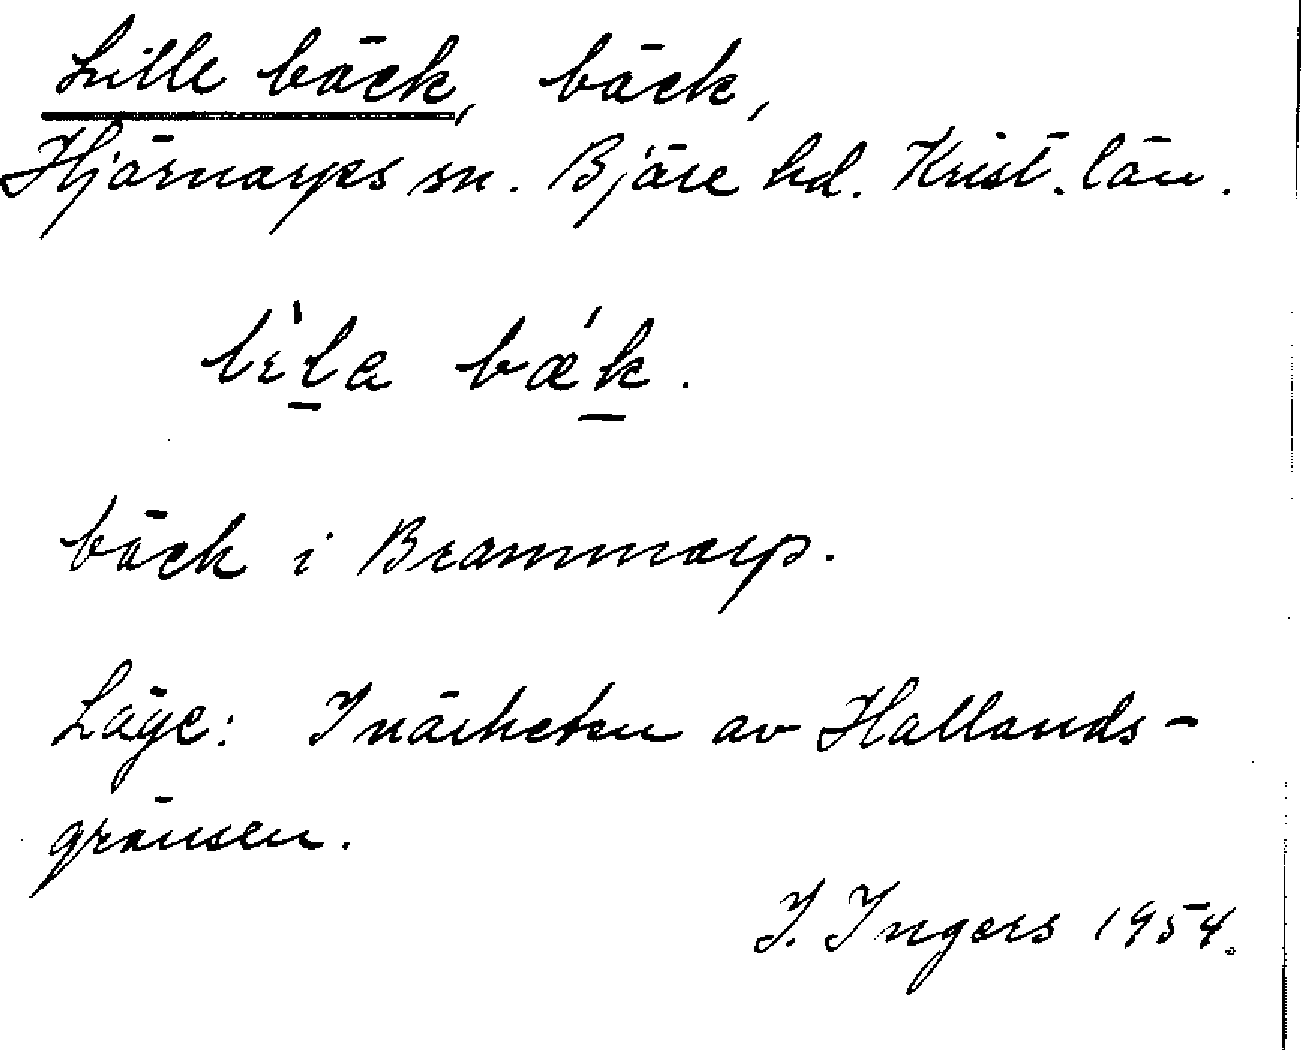 Lille bäck, bäck,
Hjärnarps sn. Bjäre hd. Krist. län.
lìla bǽk.
bäck i Brammarp.
Läge: I närheten av Hallands-
gränsen.
I. Ingers 1954.